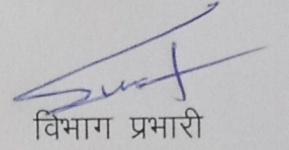 विभाग प्रभारी